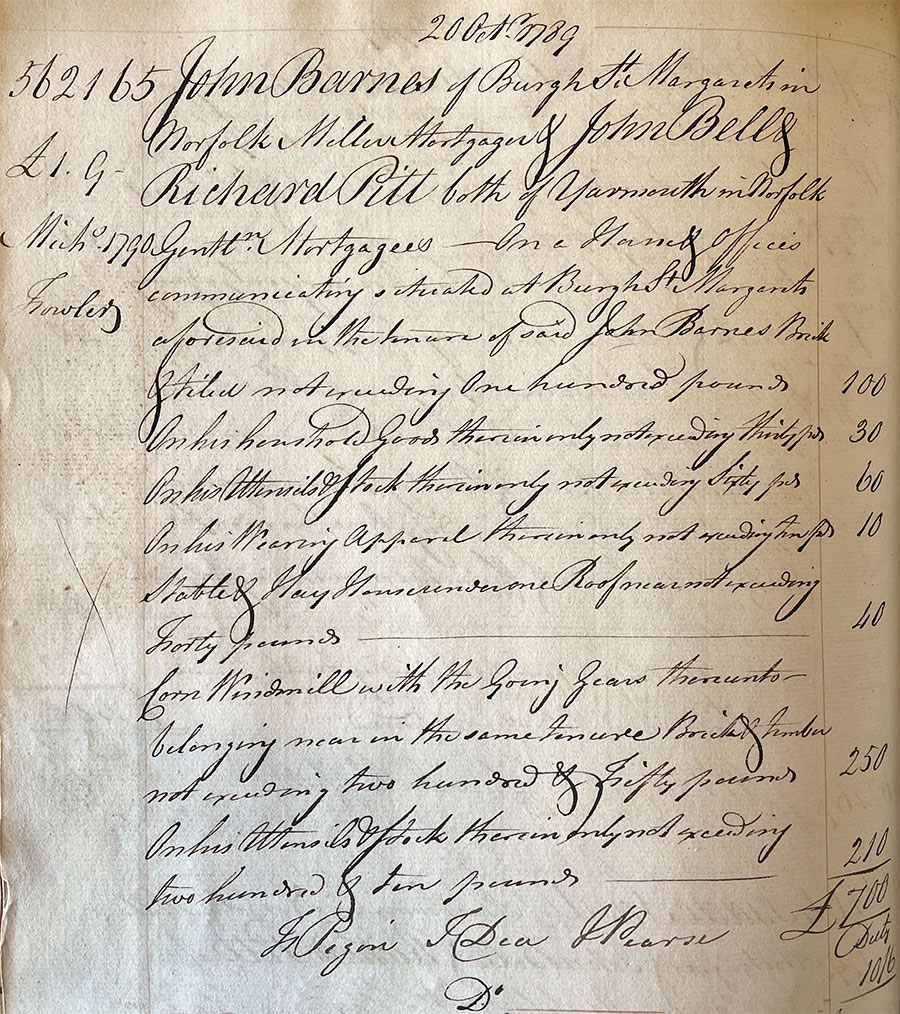 20 Octr. 1789
562165 John Barnes of Burgh St. Margarets in
Norfolk Miller Mortgager & John Bell &
£1. 9 -
Richard Pitt both of Yarmouth in Norfolk
Michs. 1790 Gentln. Mortgagees — On a House & Offices
communicating situated at Burgh St. Margarets
Fowler
aforesaid in the tenure of said John Barnes Brick
& tiled not exceeding One hundred pounds 100
On his houshold Goods therein only not exceeding thirty pds 30
On his Utensils & Stock therein only not exceeding Sixty pds 60
On his Wearing Apparel therein only not exceeding ten pds 10
Stable & Hay House under one Roof near not exceeding
Forty pounds 40
Corn Windmill with the Going Gears thereunto
belonging near in the same tenure Brick & timber
not exceeding two hundred & Fifty pounds 250
On his Utensils & Stock therein only not exceeding
two hundred & ten pounds 210
£700
J Dea J Pearse
Duty
10/6
Do.